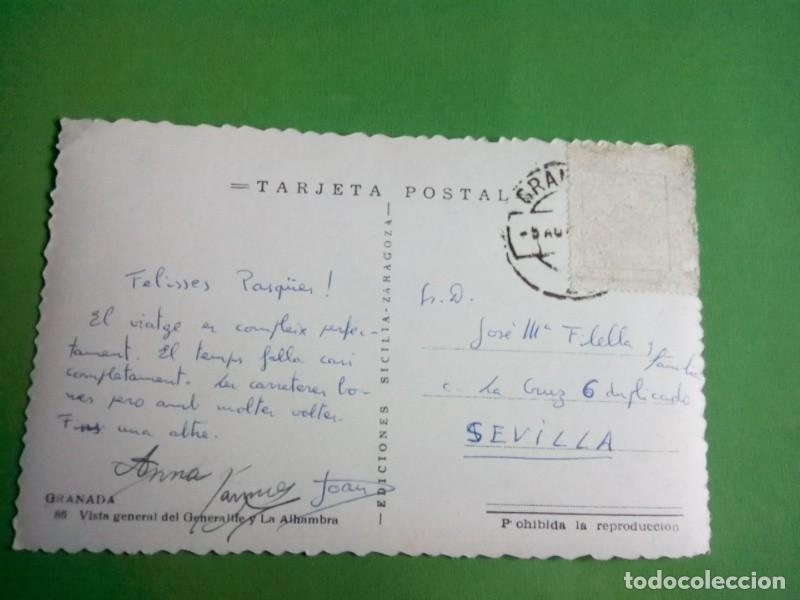 TARJETA POSTAL
GRAN
Felisses Pasqües!
El viatge es compleix perfec-
tament. El temps falla casi
completament. Les carreteres bo-
nes pero amb moltes voltes.
Fins una altre.
Anna Joan
GRANADA
86 Vista general del Generalife y La Alhambra
EDICIONES SICILIA-ZARAGOZA
Sr. D.
José Mª Filella y
familia
c. La Cruz 6 duplicado
SEVILLA
Prohibida la reproducción
todocoleccion
todocoleccion.net